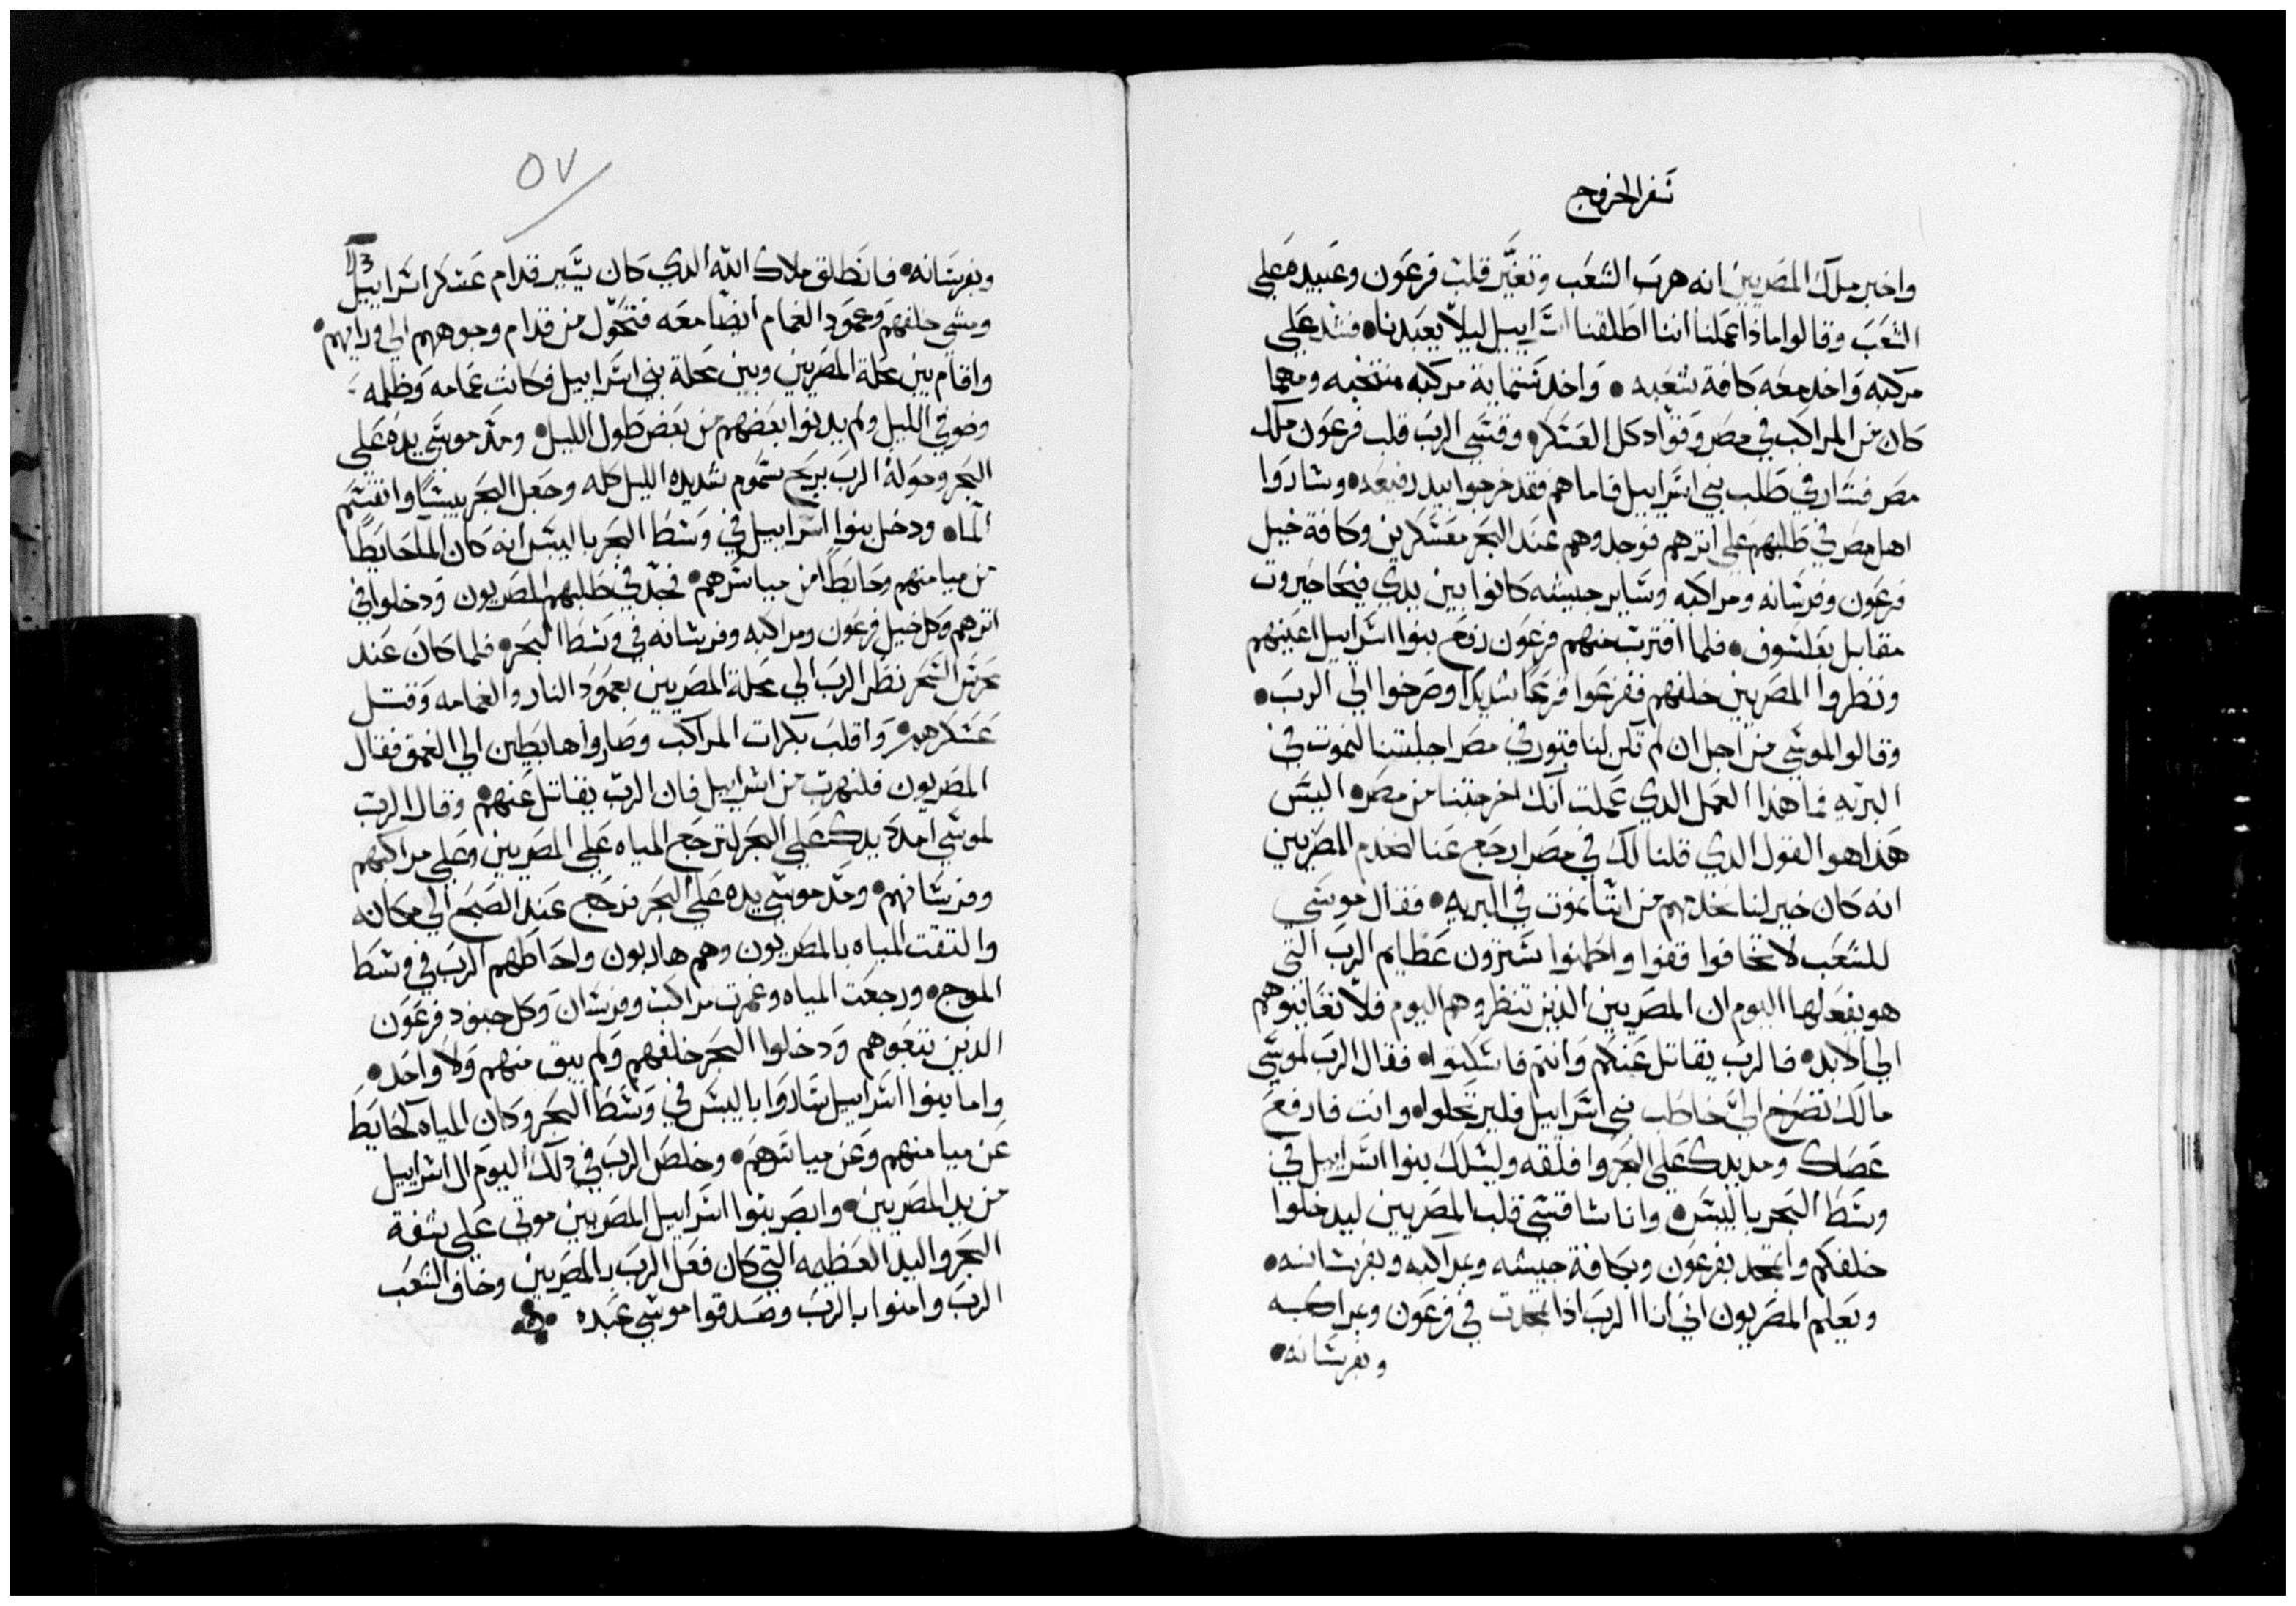 سفر الخروج
واخبر ملك المصريين انه هرب الشعب وتغير قلب فرعون وعبيده على
الشعب وقالوا ماذا عملنا اننا اطلقنا اسراييل ليلا يعبدنا• فشد على
مركبه واخد معه كافة شعبه • واخد ستماية مركبه منتخبه ومهما
كان من المراكب في مصر وقواد كل العسكر• وقسى الرب قلب فرعون ملك
مصر فسار في طلب بني اسراييل فاما هم فقد خرجوا بيد رفيعه• وساروا
اهل مصر في طلبهم على اثرهم فوجدوهم عند البحر معسكرين وكافة خيل
فرعون وفرسانه ومراكبه وساير جيشه كانوا بين يدي فيحاخيروت
مقابل بعلسوف• فلما اقترب منهم فرعون رفع بنوا اسراييل اعينهم
ونظروا المصريين خلفهم ففزعوا فزعا شديدا وصرخوا الى الرب•
وقالوا لموسى من اجل ان لم تكن لنا قبور في مصر اجلبتنا لنموت في
البريه فما هذا العمل الدي عملت انك اخرجتنا من مصر• اليس
هذا هوا القول الدي قلنا لك في مصر ارجع عنا لنخدم المصريين
انه كان خير لنا نخدمهم من اننا نموت في البريه• فقال موسى
للشعب لا تخافوا قفوا واطمنوا سترون عظايم الرب التي
هو يفعلها اليوم ان المصريين الذين تنظروهم اليوم فلا تعاينوهم
الى الابد• فالرب يقاتل عنكم وانتم فاسكتوا• فقال الرب لموسى
مالك تصرخ الي خاطب بني اسراييل فليرتحلوا• وانت فارفع
عصاك ومد يدك على البحر وافلقه وليسلك بنوا اسراييل في
وسط البحر باليبس• وانا ساقسى قلب المصريين ليدخلوا
خلفكم واتمجد بفرعون وبكافة جيشه وبمراكبه وبفرسانه•
ويعلم المصريون اني انا الرب اذا تمجدت في فرعون وبمراكبه
وبفرسانه•
٥٧
113
وبفرسانه• فانطلق ملاك الله الدي كان يسير قدام عسكر اسراييل
ومشى خلفهم وعمود الغمام ايضا معه فتحول من قدام وجوههم الى ورايهم•
واقام بين محلة المصريين وبين محلة بني اسراييل فكانت غمامه وظلمه
وضوفي الليل ولم يدنوا بعضهم من بعض طول الليل• ومد موسى يده على
البحر وحوله الرب بريح سموم شديده الليل كله وجعل البحر يبسا وانقسم
الما• ودخل بنوا اسراييل في وسط البحر باليبس انه كان الما حايطا
من ميامنهم وحايطا من مياسرهم• فجد في طلبهم المصريون ودخلوا في
اثرهم وكل خيل فرعون ومراكبه وفرسانه في وسط البحر• فلما كان عند
محرس السحر نظر الرب الى محلة المصريين بعمود النار والغمامه وقتل
عسكرهم• واقلب بكرات المراكب وصاروا هابطين الى العمق فقال
المصريون فلنهرب من اسراييل فان الرب يقاتل عنهم• وقال الرب
لموسى امدد يدك على البحر لترجع المياه على المصريين وعلى مراكبهم
وفرسانهم• ومد موسى يده على البحر فرجع عند الصبح الى مكانه
والتقت المياه بالمصريون وهم هاربون واحاطهم الرب في وسط
الموج• ورجعت المياه وغمرت مراكب وفرسان وكل جنود فرعون
الذين تبعوهم ودخلوا البحر خلفهم ولم يبق منهم ولا واحد•
واما بنوا اسراييل ساروا باليبس في وسط البحر وكان المياه كحايط
عن ميامنهم وعن مياسرهم• وخلص الرب في ذلك اليوم ال اسراييل
من يد المصريين• وابصر بنوا اسراييل المصريين موتى على شفة
البحر واليد العظيمه التي كان فعل الرب بالمصريين وخاف الشعب
الرب وامنوا بالرب وصدقوا موسى عبده